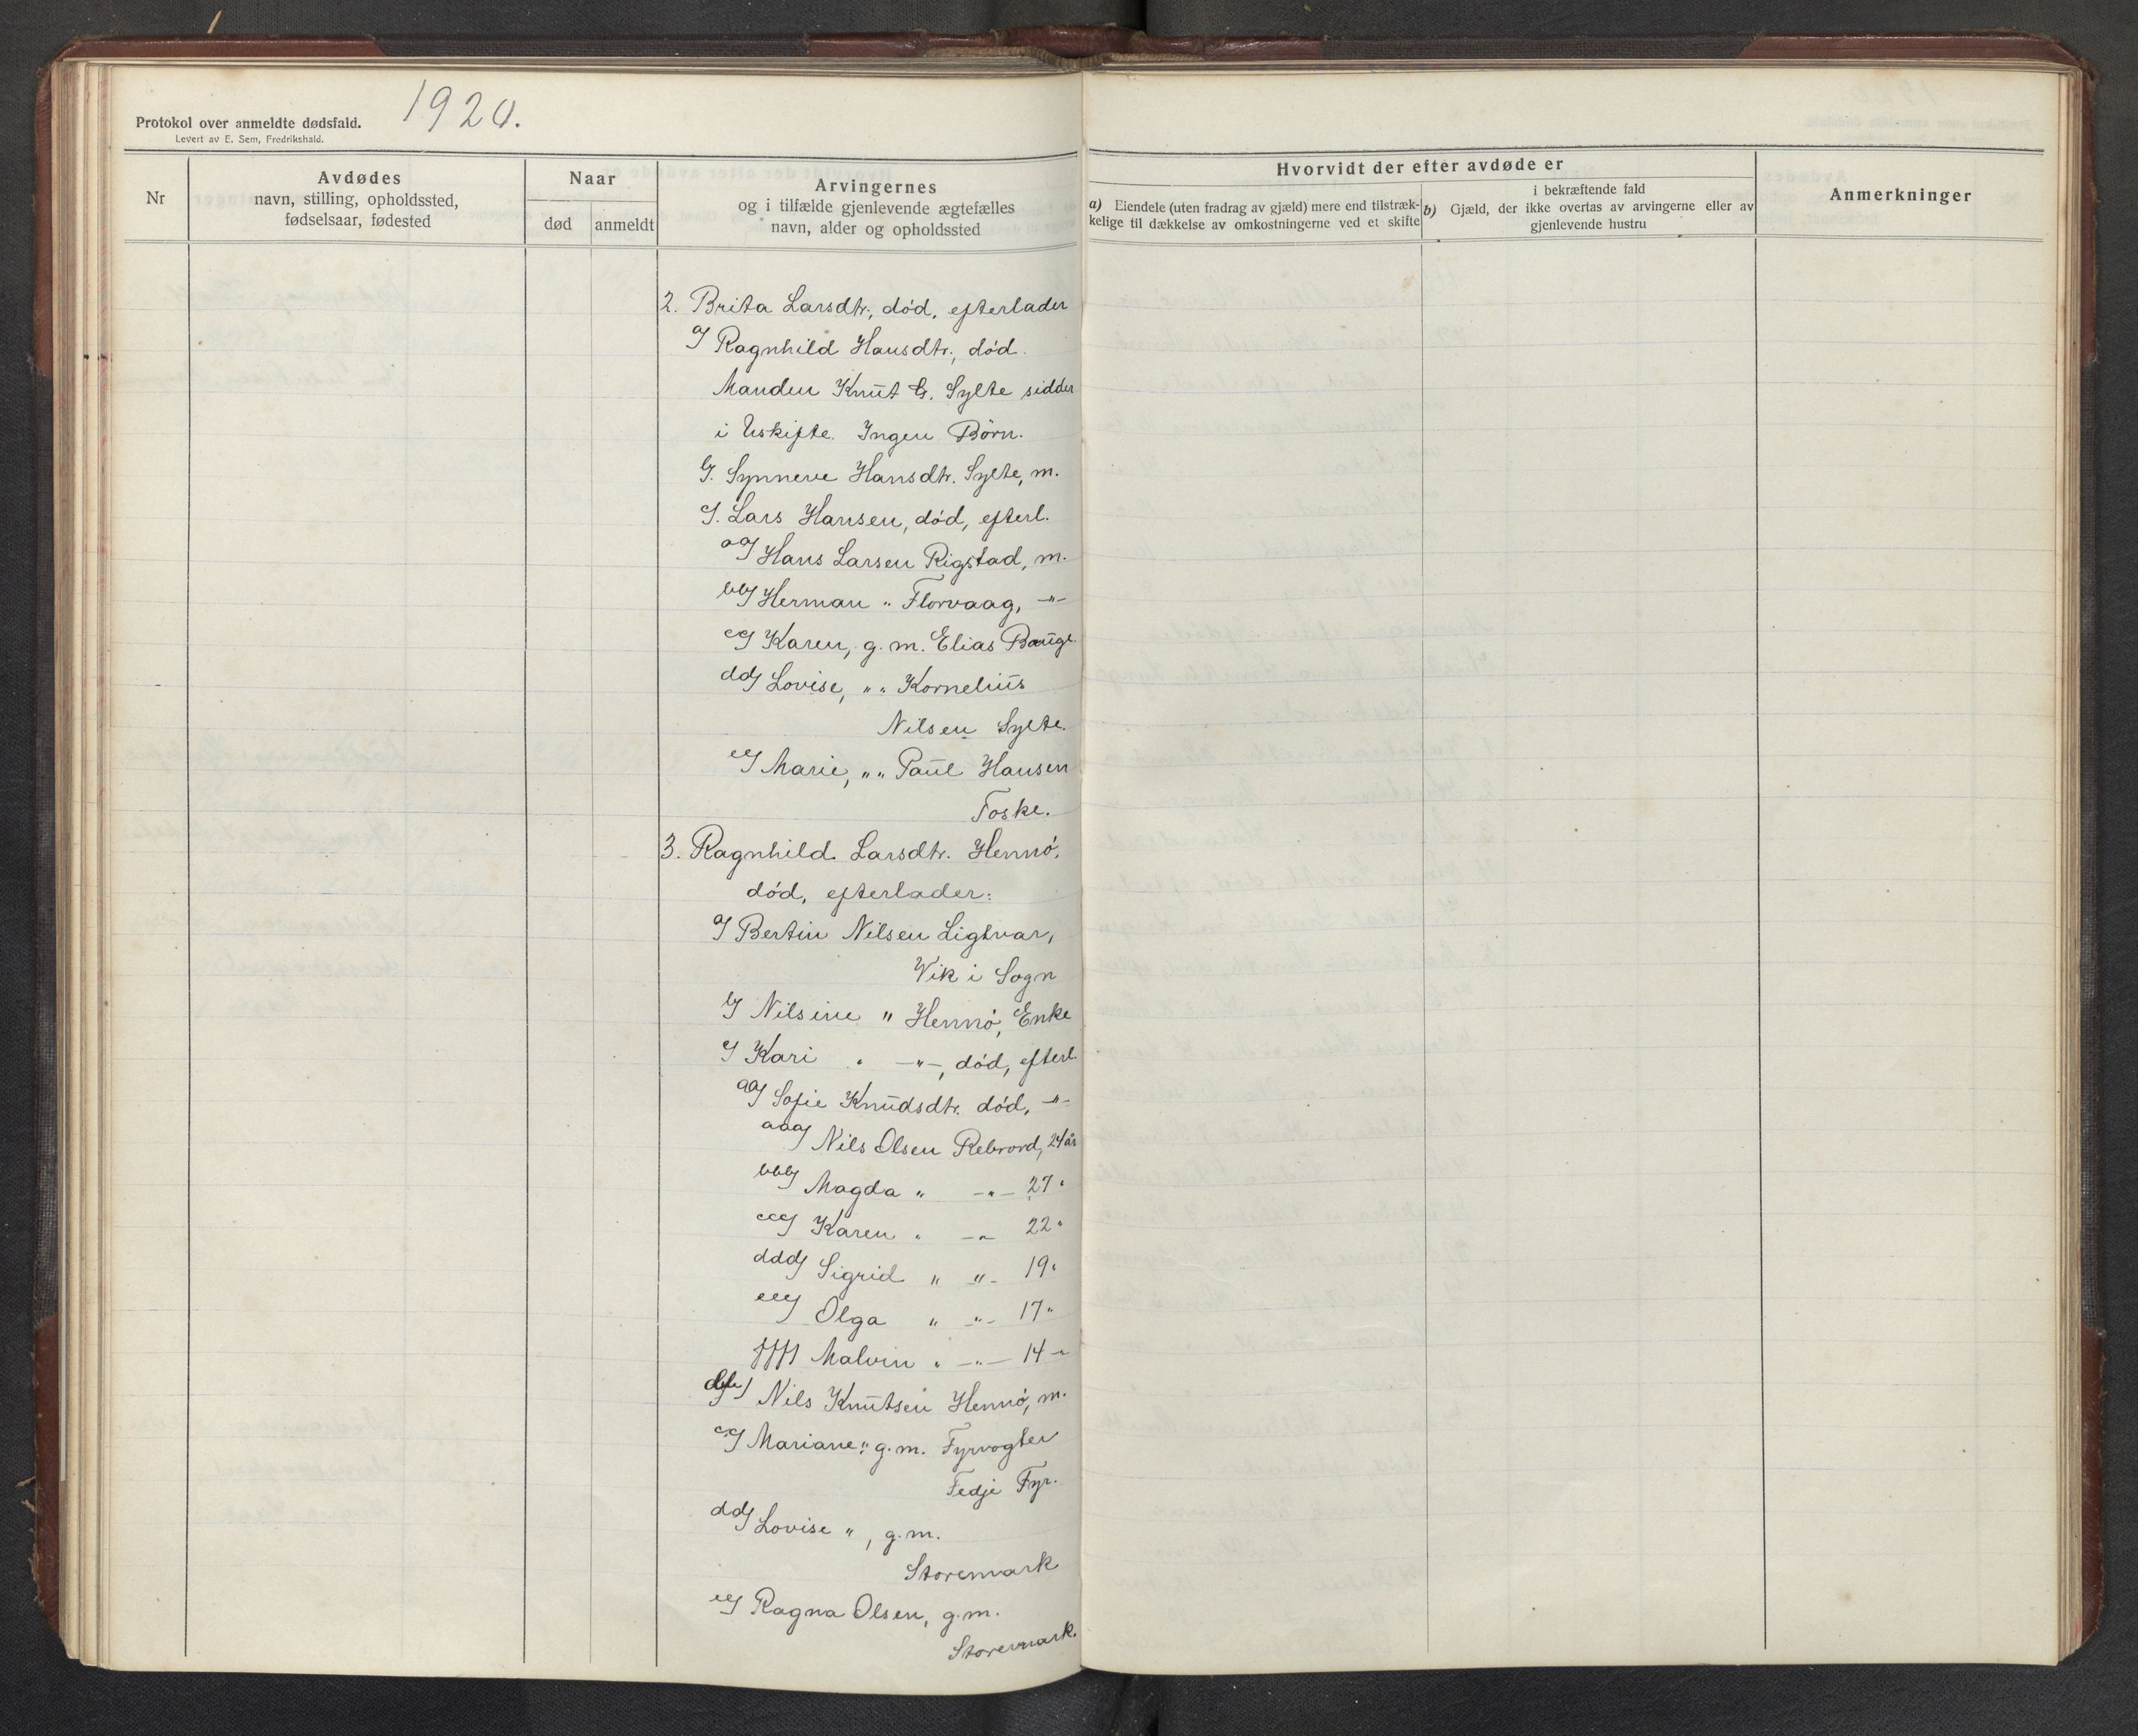 1920.
Protokol over anmeldte dødsfald.
Levert av E. Sem, Fredrikshald.
Nr
Avdødes
navn, stilling, opholdssted,
fødselsaar, fødested
Naar
død
anmeldt
Arvingernes
og i tilfælde gjenlevende ægtefælles
navn, alder og opholdssted
Hvorvidt der efter avdøde er
a) Eiendele (uten fradrag av gjæld) mere end tilstræk-
kelige til dækkelse av omkostningerne ved et skifte
i bekræftende fald
b) Gjæld, der ikke overtas av arvingerne eller av
gjenlevende hustru
Anmerkninger
2. Brita Larsdtr., død, efterlader
a) Ragnhild Hansdtr., død.
Manden Knut G. Sylte sidder
i Uskifte. Ingen Børn.
b). Synneve Hansdtr. Sylte, m.
c). Lars Hansen, død, efterl.
aa) Hans Larsen Rigstad, m.
bb) Herman " Florvaag, -"-
cc) Karen, g. m. Elias Bauge
dd) Lovise, " " Kornelius
Nilsen Sylte.
ee) Marie, " " Paul Hansen
Toske.
3. Ragnhild Larsdtr. Hennø,
død, efterlader:
a) Bertin Nilsen Ligtvar,
Vik i Sogn
b) Nilsine " Hennø, Enke
c) Kari " -"-, død, efterl.
aa) Sofie Knudsdtr. død, -"-
aaa) Nils Olsen Rebnord, 24 år
bbb) Magda " -"- 27 "
ccc) Karen " -"- 22 "
ddd) Sigrid " -"- 19 "
eee) Olga " -"- 17 "
fff) Malvin " -"- 14 -"
bb) Nils Knutsen Hennø, m.
cc) Mariane " g. m. Fyrvogter
Fedje Fyr.
dd) Lovise ", g. m.
Storemark
ee) Ragna Olsen, g. m.
Storemark.